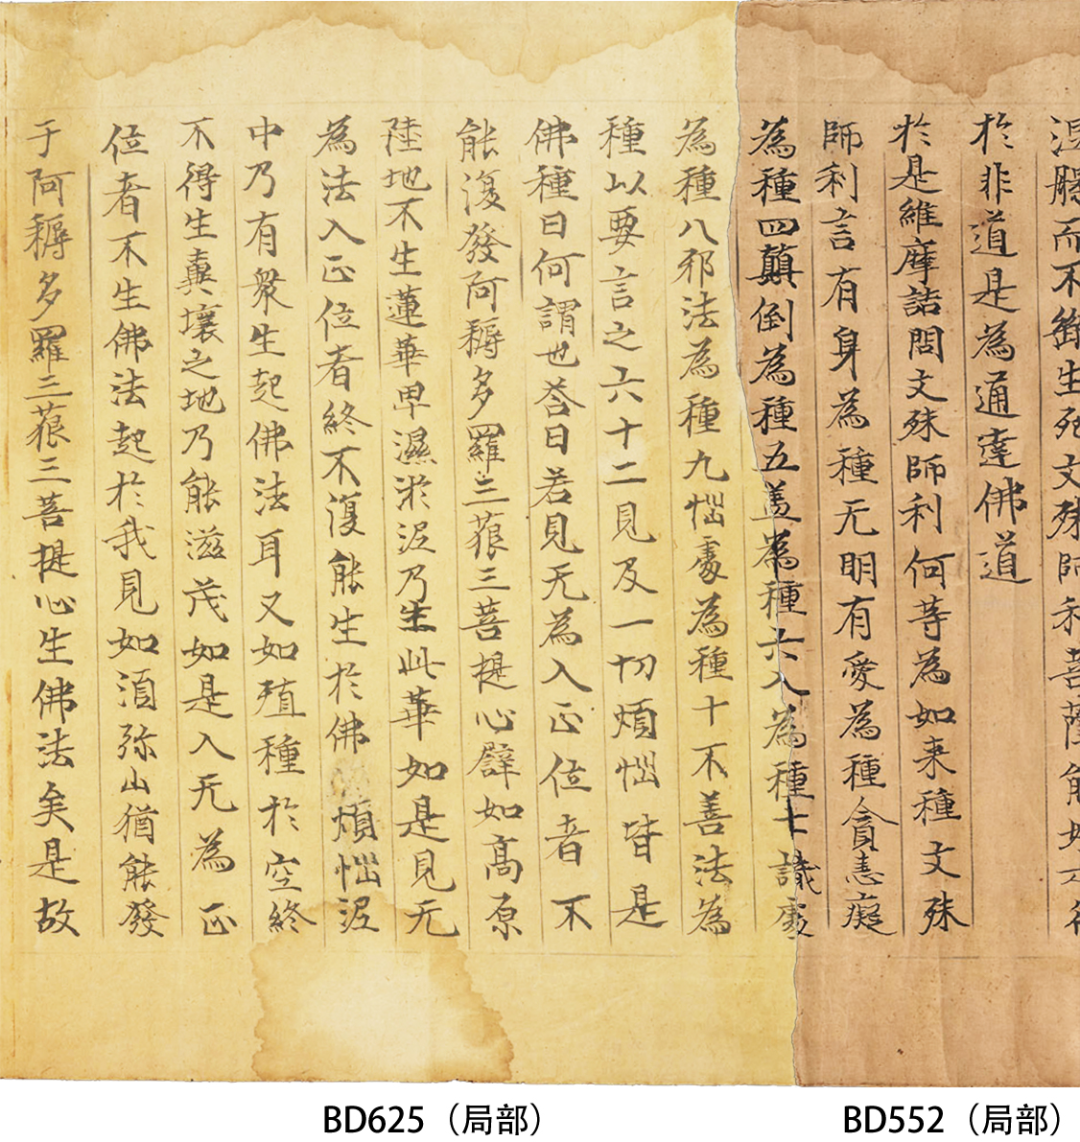 濕勝而不斷生死文殊師利菩薩能
於非道是為通達佛道
於是維摩詰問文殊師利何等為如来種文殊
師利言有身為種无明有愛為種貪恚癡
為種四顛倒為種五盖為種六入為種七識處
為種八邪法為種九惱處為種十不善法為
種以要言之六十二見及一切煩惱皆是
佛種曰何謂也荅曰若見无為入正位者不
能復發阿耨多羅三藐三菩提心譬如高原
陸地不生蓮華卑濕淤泥乃生此華如是見无
為法入正位者終不復能生於佛煩惱泥
中乃有衆生起佛法耳又如殖種於空終
不得生糞壤之地乃能滋茂如是入无為正
位者不生佛法起於我見如湏弥山猶能發
于阿耨多羅三藐三菩提心生佛法矣是故
BD625（局部）
BD552（局部）